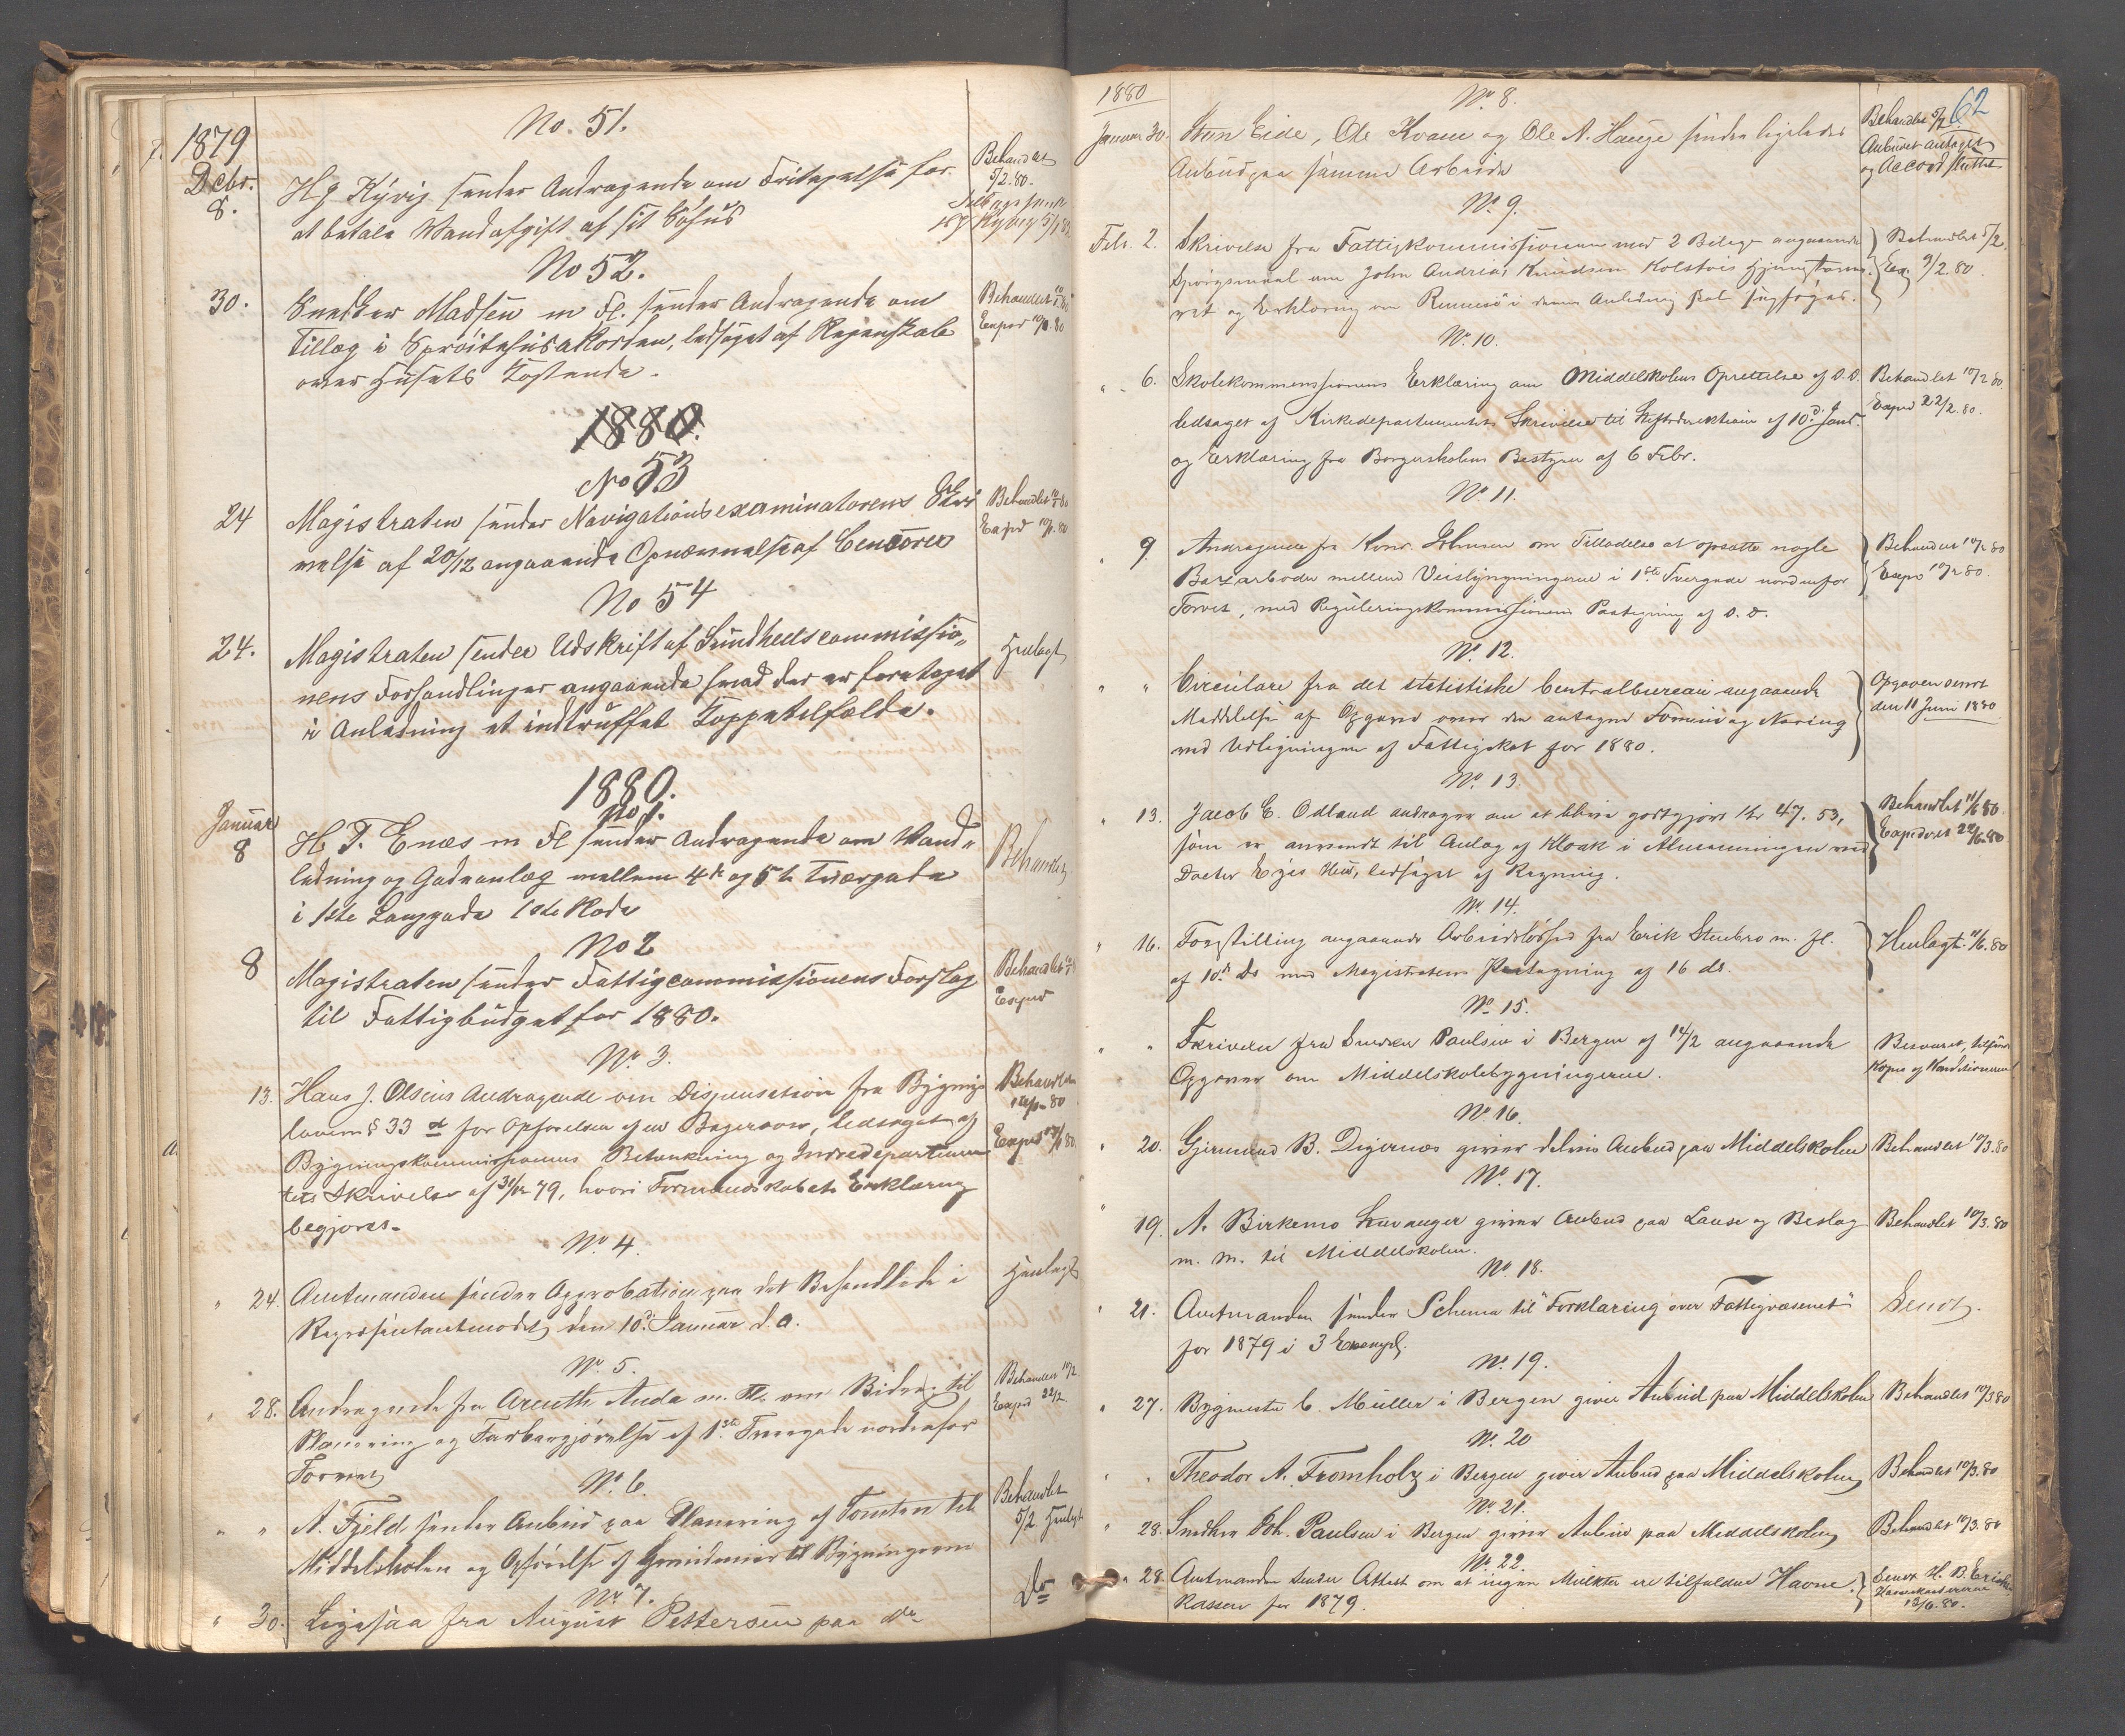 1879
Decbr.
8.
No. 51.
H. J. Kyvig sender Andragende om Fritagelse for
at betale Vandafgift af sit Søhus
Behandlet
5/2.80.
No 52.
30.
Snedker Madsen m Fl. sender Andragende om
Tillæg i Sprøitehusakorden, ledsaget af Regnskab
over Husets Kostende.
Behandlet
Exped 10/1.80
1880.
No 53
24
Magistraten sender Navigationsexaminatorens Skri
velse af 20/12 angaaende Opnævnelse af Censorer
Behandlet
Exped 10/1.80
No 54
24.
Magistraten sender Udskrift af Sundhedscommissio„
nens Forhandlinger angaaende hvad der er foretaget
i Anledning et indtruffet Koppetilfælde.
Henlagt
1880.
No 1.
Januar
8
H. T. Enæs m Fl sender Andragende om Vand„
ledning og Gadeanlæg mellem 4de og 5te Tværgade
i 1ste Langgade 1ste Rode
Behandlet
No 2
8
Magistraten sender Fattigcommissionens Forslag
til Fattigbudget for 1880.
Behandlet
Exped
No. 3.
13.
Hans J. Olsens Andragende om Dispensation fra Bygnings
lovens § 33 for Opførelsen af en Bagerovn, ledsaget af
Bygningskommissionens Betænkning og Indredepartemen
tets Skrivelse af 31/12 79, hvori Formandskabets Erklæring
begjæres.
Behandlet
Exped
No. 4.
" 24.
Amtmanden sender Approbation paa det Behandlede i
Repræsentantmødet den 10de Januar d. a.
Henlagt
No. 5.
" 28.
Andragende fra Arenth Anda m. Fl. om Bidrag til
Planering og Farbargjørelse af 1ste Tvergade nordenfor
Torvet
Behandlet 10/2.
Exped 22/2.
No. 6.
" "
A. Fjeld sender Anbud paa Planering af Tomten til
Middelskolen og Opførelse af Grundmur til Bygningerne
Behandlet
5/2. Henlagt
No. 7.
" 30.
Ligesaa fra August Pettersen paa do
Do
1880
62
No. 8.
Januar 30.
Sten Eide, Ole Kvam og Ole A. Hauge sender ligeledes
Anbud paa samme Arbeide
Behandlet 5/2
Anbudet antaget
og Accord sluttet
No. 9.
Febr. 2.
Skrivelse fra Fattigkommissionen med 2 Bilage angaaende
Spørgsmaal om John Andreas Knudsen Kolstøs Hjemstavns-
ret og Erklæring om Rennesø i denne Anledning skal sagsøges.
Behandlet 5/2.
Exp. 9/2.80.
No. 10.
" 6.
Skolekommenssionens Erklæring om Middelskolens Oprettelse af D. D.
ledsaget af Kirkedepartementets Skrivelse til Stiftsdirektionen af 10de Janr.
og Erklæring fra Borgerskolens Bestyrer af 6 Febr.
Behandlet 10/2 80
Exped 22/2.80.
No. 11.
" 9.
Andragende fra Konr. Johnsen om Tilladelse at opsætte nogle
Bazarboder mellem Veislyngningerne i 1ste Tvergade nordenfor
Torvet, med Reguleringskommissionens Paategning af D. D.
Behandlet 10/2 80
Exped 10/2 80.
No. 12.
" "
Circulære fra det statistiske Centralbureau angaaende
Meddelelse af Opgaver over den antagne Formue og Næring
ved Udligningen af Fattigskat for 1880.
Opgaven sendt
den 11 Juni 1880
No. 13.
" 13.
Jacob E. Odland andrager om at blive godtgjort Kr 47. 53,
som er anvendt til Anlæg af Kloak i Almenningen ved
Doctor Eges Hus, ledsaget af Regning.
Behandlet 11/6 80.
Expederet 22/6.80
No. 14.
" 16.
Forestilling angaaende Arbeidsløshed fra Erik Stenbro m. fl.
af 10de ds med Magistratens Paategning af 16 ds.
Henlagt. 11/6.80
No. 15.
" "
Skrivelse fra Snedker Paulsen i Bergen af 14/2 angaaende
Opgaver om Middelskolebygningerne.
Besvaret, tilsendt
Kopie af Konditionerne
No. 16.
" 20.
Gjermund B. Digernæs giver delvis Anbud paa Middelskolen
Behandlet 10/3.80
No. 17.
" 19.
A. Birkemo Stavanger giver Anbud paa Laase og Beslag
m. m. til Middelskolen.
Behandlet 10/3.80
No. 18.
" 21.
Amtmanden sender Schema til "Forklaring over Fattigvæsenet"
for 1879 i 3 Exempl.
Sendt.
No. 19.
" 27.
Bygmester C. Müller i Bergen giver Anbud paa Middelskolen
Behandlet 10/3 80
No. 20
" "
Theodor A. Fromholz i Bergen giver Anbud paa Middelskolen
Behandlet 10/3.80
No. 21.
" 28.
Snedker Joh. Paulsen i Bergen giver Anbud paa Middelskolen
Behandlet 10/3.80
No. 22.
" 28.
Amtmanden sender Attest om at ingen Mulkter ere tilfaldne Havne
Kassen for 1879.
Sendt H. B. Erichs.
Havnekassereren
12/6.80.